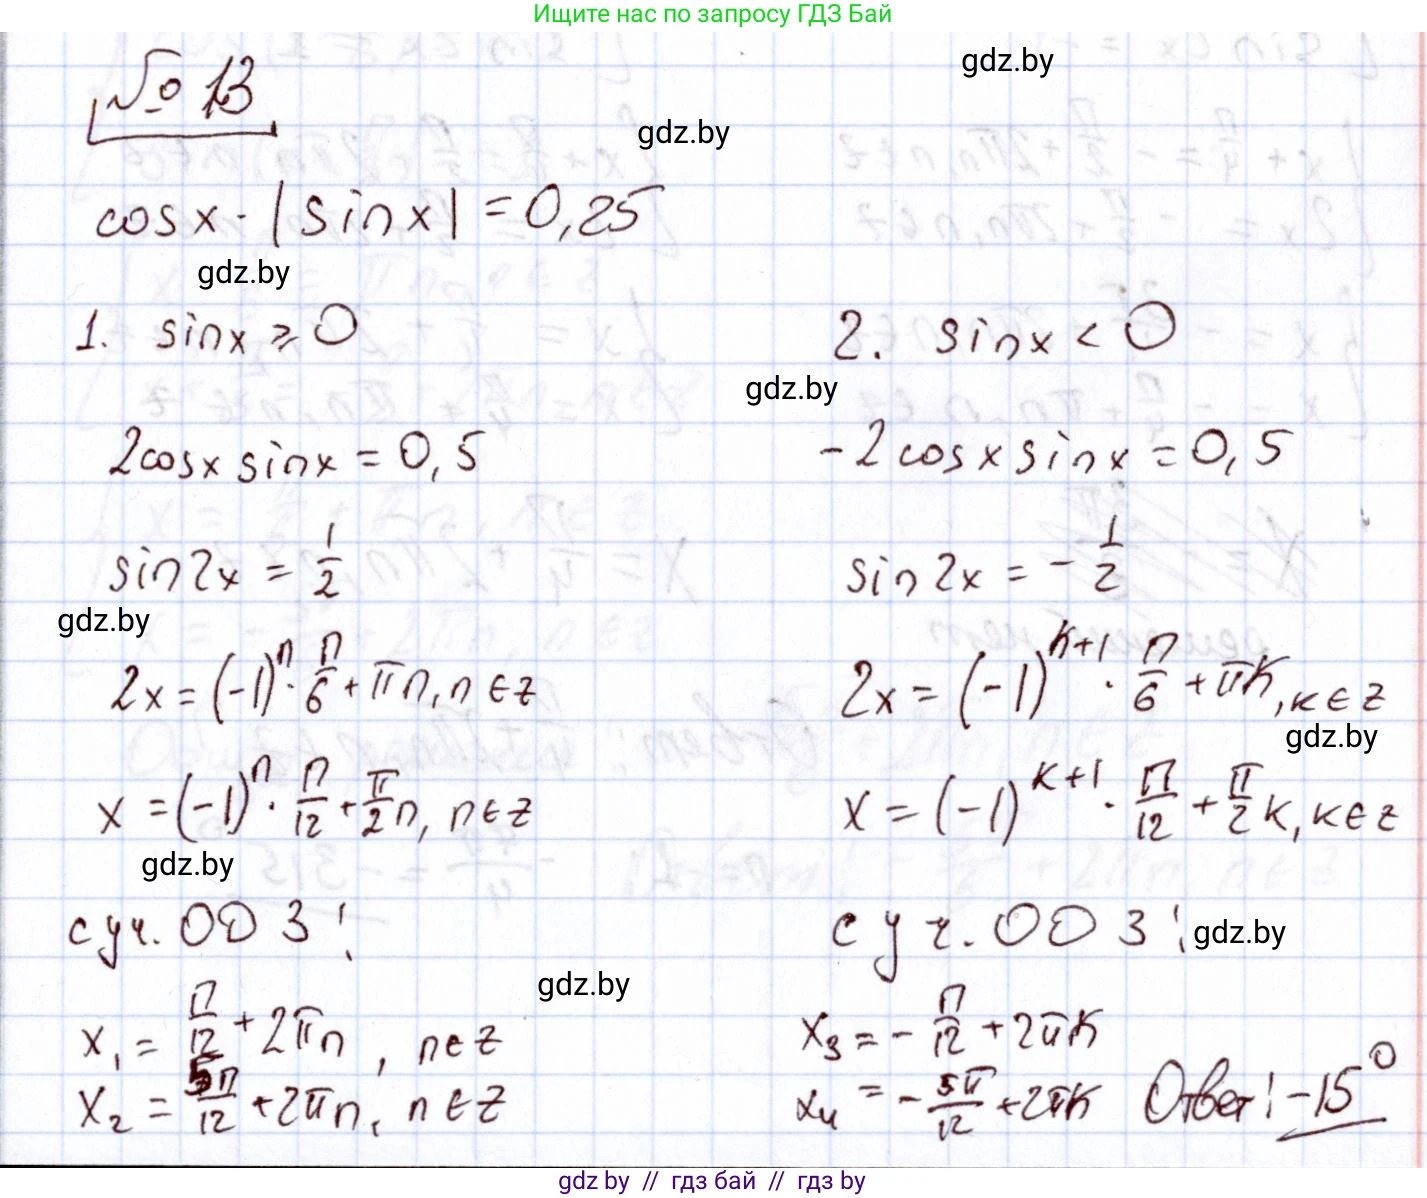 Ищите нас по запросу ГДЗ Бай
№ 13
gdz.by
gdz.by
cosx · |sinx| = 0,25
gdz.by
1. sinx ≥ 0
2. sinx < 0
gdz.by
2cosx sinx = 0,5
-2cosx sinx = 0,5
sin2x = 1/2
sin2x = - 1/2
gdz.by
2x = (-1)^n · π/6 + πn, n ∈ Z
2x = (-1)^(k+1) · π/6 + πk, k ∈ Z
gdz.by
x = (-1)^n · π/12 + π/2 n, n ∈ Z
x = (-1)^(k+1) · π/12 + π/2 k, k ∈ Z
gdz.by
с уч. ОДЗ:
с уч. ОДЗ:
gdz.by
gdz.by
x₁ = π/12 + 2πn, n ∈ Z
x₃ = - π/12 + 2πk
x₂ = 5π/12 + 2πn, n ∈ Z
x₄ = - 5π/12 + 2πk
Ответ: -15°
gdz.by // гдз бай // гдз by